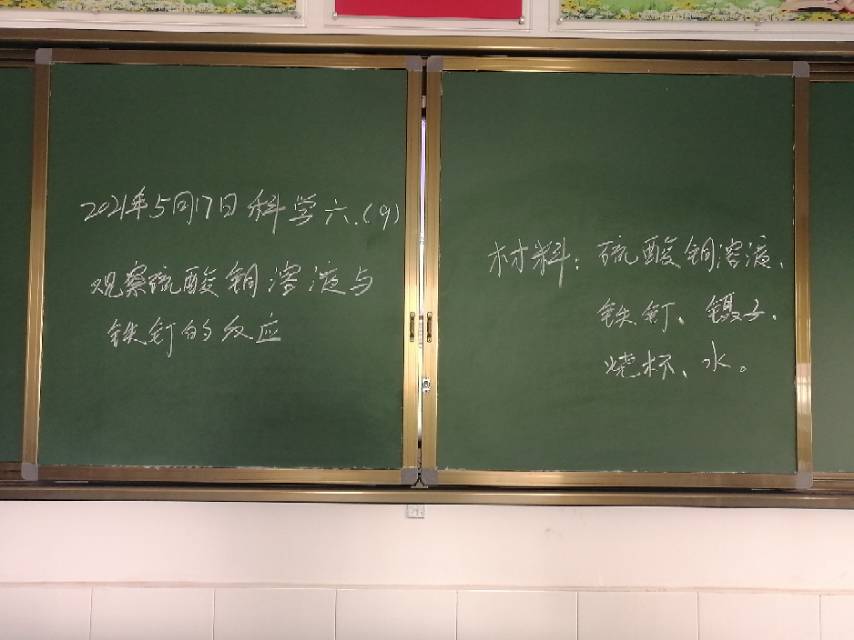 2021年5月17日科学六.(9)
观察硫酸铜溶液与
铁钉的反应
材料：硫酸铜溶液、
铁钉、镊子、
烧杯、水。